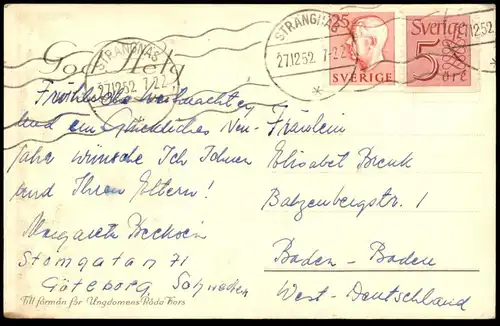 God Helg
STRÄNGNÄS
27.12.52 7-22
STRÄNGNÄS
27.12.52 7-22
12.52
25
SVERIGE
Sverige
5
öre
Fröhliche Weihnachten
und ein Glückliches Neu-
jahr wünsche Ich Ihnen
und Ihren Eltern!
Margareta
Stomgatan 71
Göteborg Schweden
Till förmån för Ungdomens Röda Kors
Fräulein
Elisabet Brenk
Batzenbergstr. 1
Baden-Baden
West-Deutschland